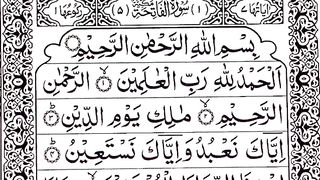 اٰیاتہا ۷ (۱) سُوْرَۃُ الْفَاتِحَۃِ (۵) رکوعہا ۱
بِسْمِ اللّٰهِ الرَّحْمٰنِ الرَّحِیْمِ
اَلْحَمْدُ لِلّٰهِ رَبِّ الْعٰلَمِیْنَ ۙ۝۱ الرَّحْمٰنِ
الرَّحِیْمِ ۙ۝۲ مٰلِكِ یَوْمِ الدِّیْنِ ؕ۝۳
اِیَّاكَ نَعْبُدُ وَاِیَّاكَ نَسْتَعِیْنُ ؕ۝۴